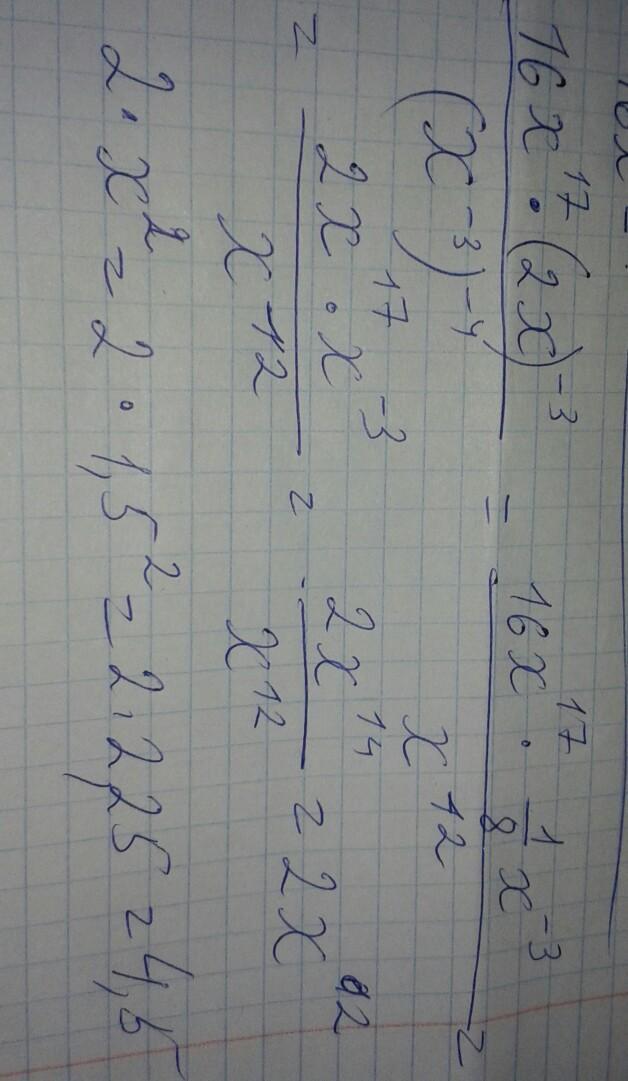 16x¹⁷ · (2x)⁻³ / (x⁻³)⁻⁴ = 16x¹⁷ · 1/8 x⁻³ / x¹² =
= 2x¹⁷ · x⁻³ / x¹² = 2x¹⁴ / x¹² = 2x²
2 · x² = 2 · 1,5² = 2 · 2,25 = 4,5